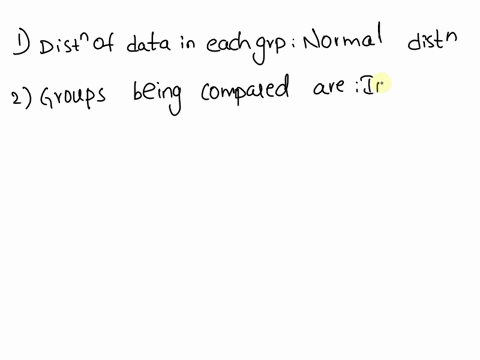 1) Distⁿ of data in each grp : Normal distⁿ
2) Groups being compared are : In